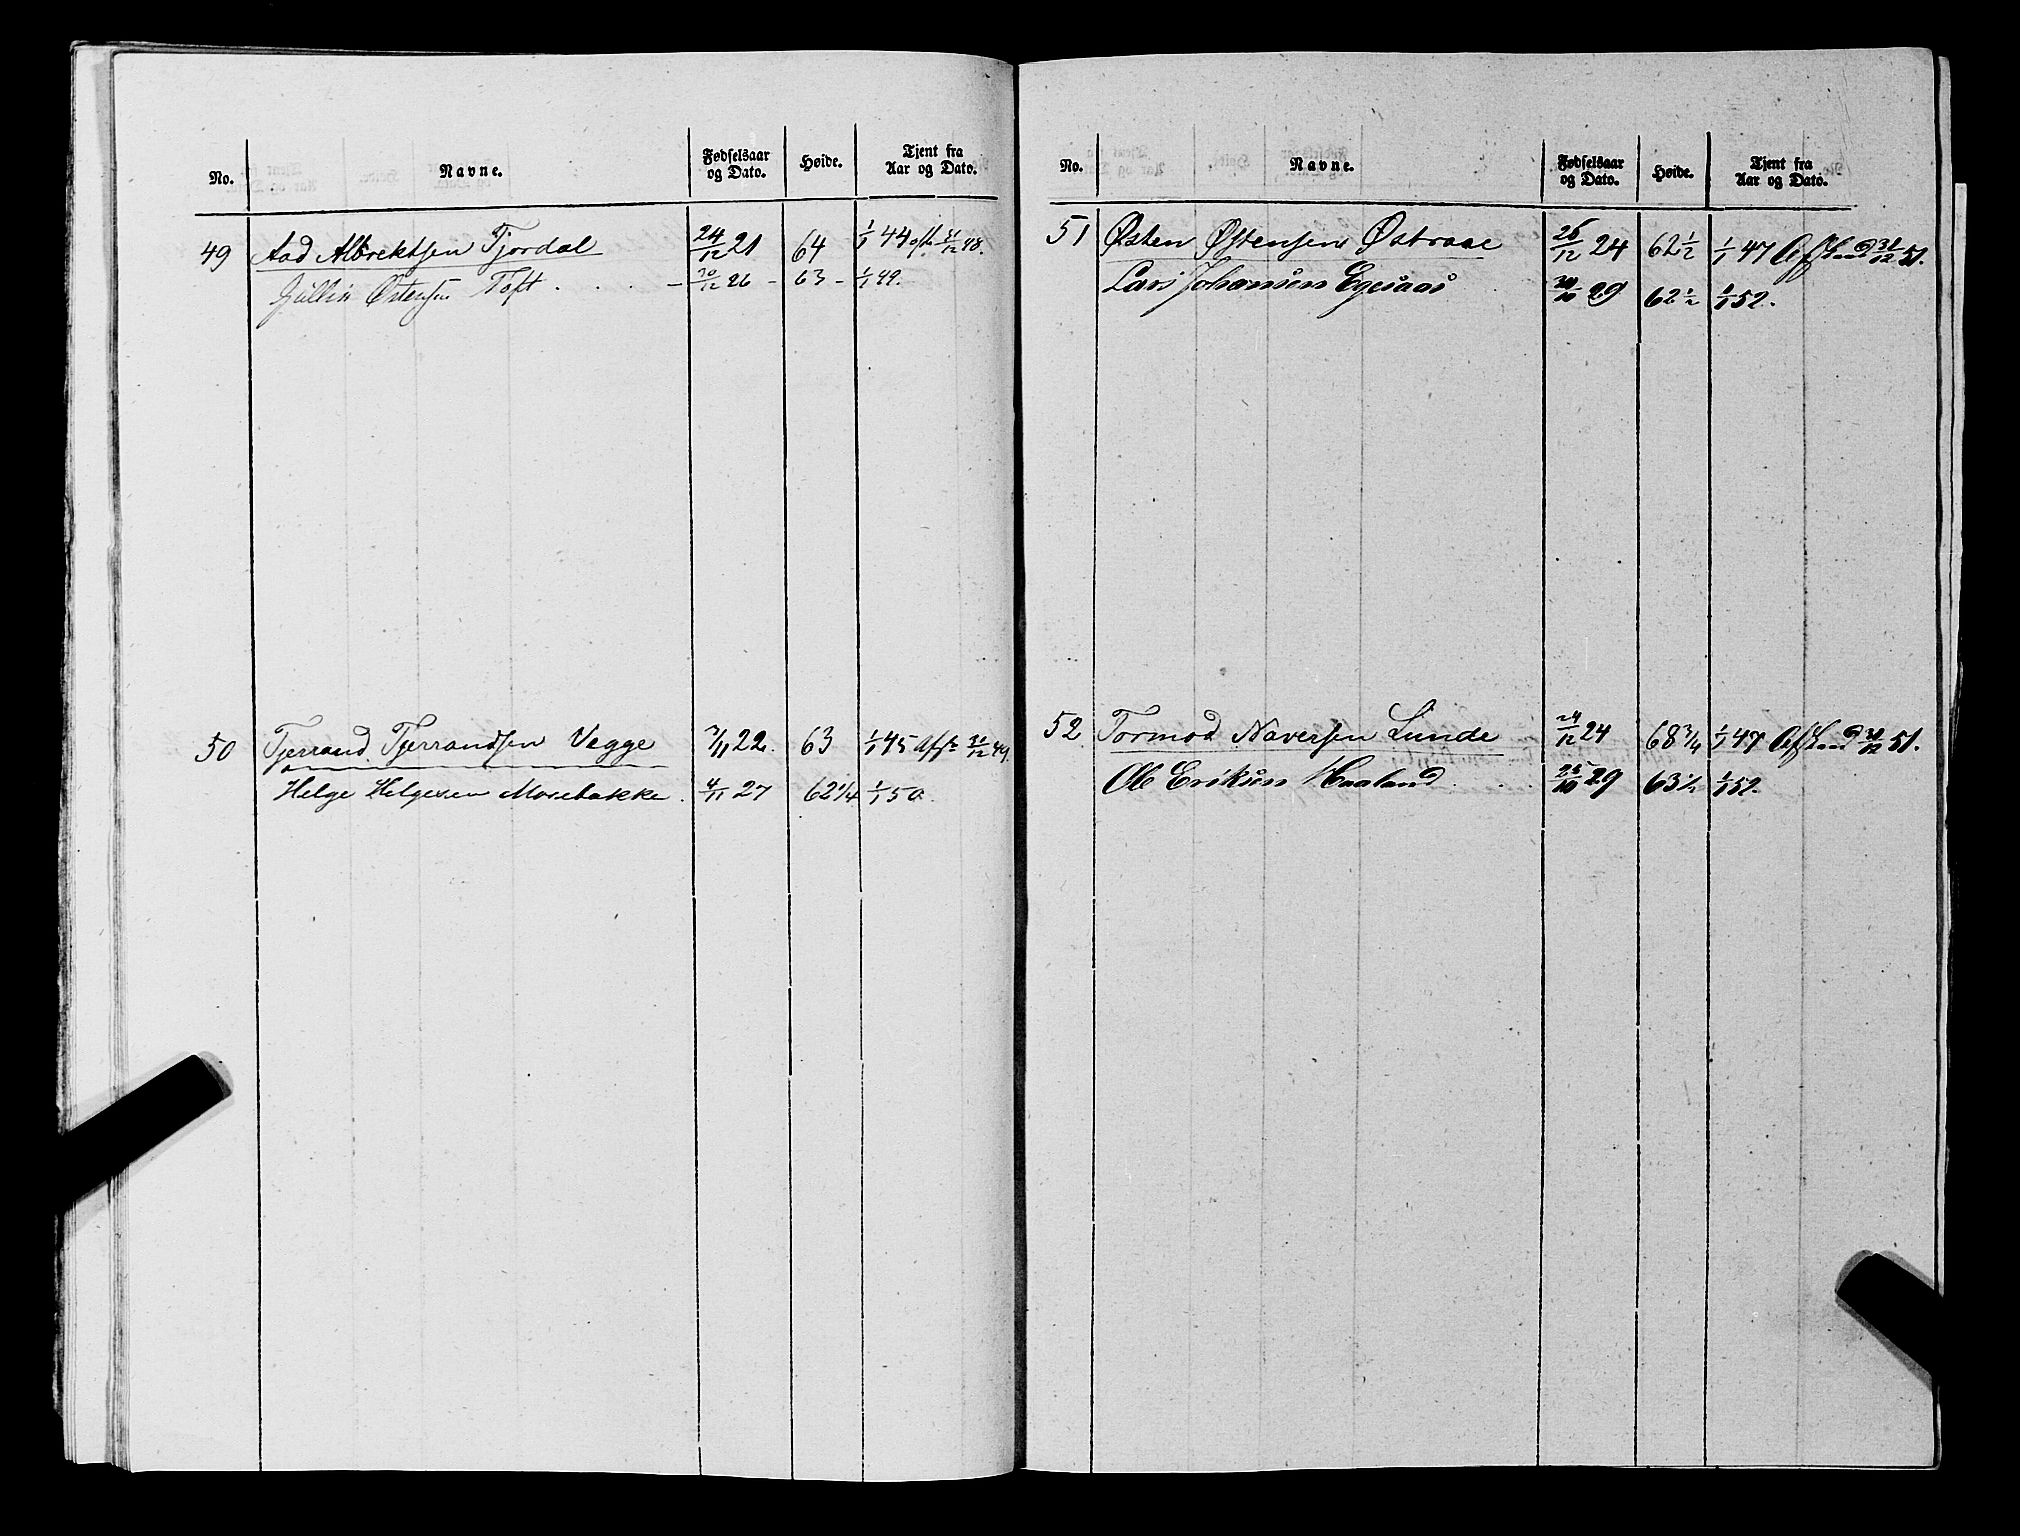 No. Navne. Fødselsaar og Dato. Høide. Tjent fra Aar og Dato.
49 Aad Albrektsen Tjordal 24/12 21 64 1/1 44 afsk 31/12 48.
Gullik Østensen Toft . . . - 30/12 26 - 63 - 1/1 49.
50 Tjerrand Tjerrandsen Vegge 3/11 22. 63 1/1 45 Afsk 31/12 49.
Helge Helgesen Mosebakke . 4/11 27 62 1/4 1/1 50.
No. Navne. Fødselsaar og Dato. Høide. Tjent fra Aar og Dato.
51 Østen Østensen Østraae 26/12 24 62 1/2 1/1 47 Afskeed 31/12 51.
Lars Johansen Egesaas 29 62 1/2 1/1 52.
52 Tormod Naversen Lunde 24/12 24 68 3/4 1/1 47 Afskeed 31/12 51.
Ole Eriksen Haaland . . . 25/10 29 63 1/2 1/1 52.